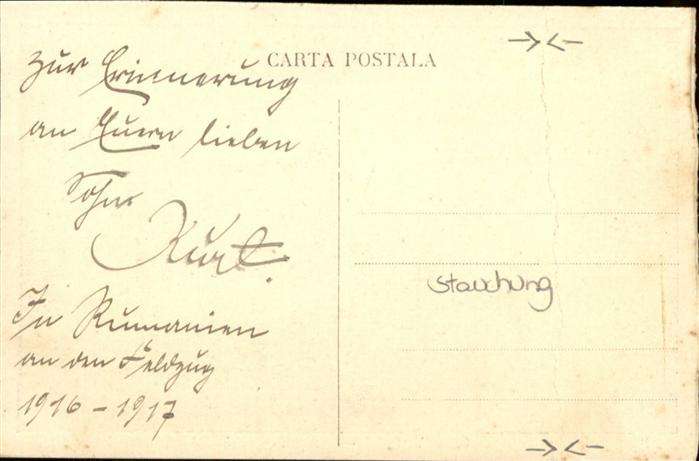 CARTA POSTALA
Zur Erinnerung
an Euern lieben
Sohn
Kurt.
In Rumänien
an den Feldzug
1916 – 1917
Stauchung